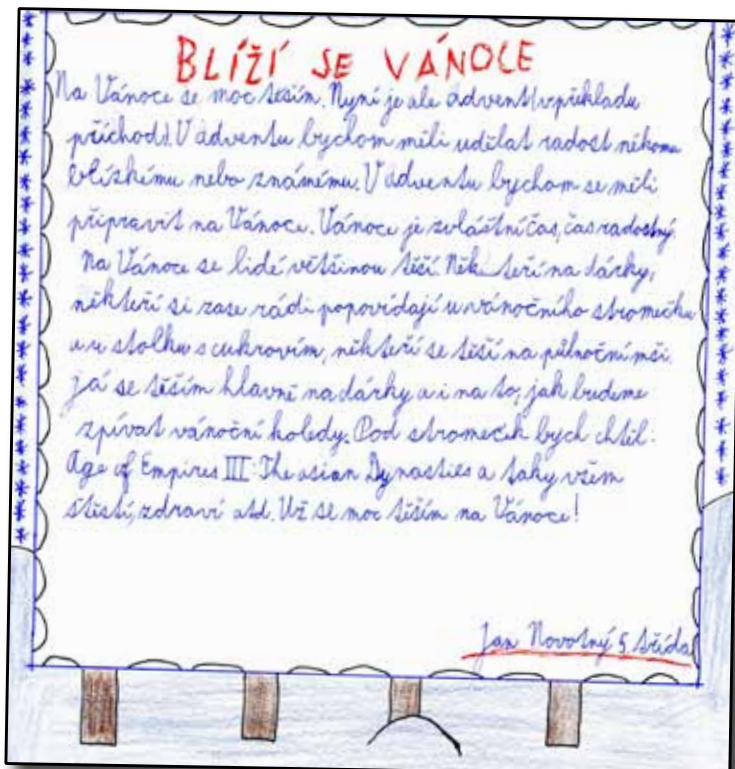 BLÍŽÍ SE VÁNOCE
Na Vánoce se moc těším. Nyní je ale advent (v překladu
příchod). V adventu bychom měli udělat radost někomu
blízkému nebo známému. V adventu bychom se měli
připravit na Vánoce. Vánoce je zvláštní čas, čas radostný.
Na Vánoce se lidé většinou těší. Někteří na dárky,
někteří si zase rádi popovídají u vánočního stromečku
a u stolku s cukrovím, někteří se těší na půlnoční mši.
Já se těším hlavně na dárky a i na to, jak budeme
zpívat vánoční koledy. Pod stromeček bych chtěl:
Age of Empires III: The asian Dynasties a taky všem
štěstí, zdraví atd. Už se moc těším na Vánoce!
Jan Novotný 5. třída